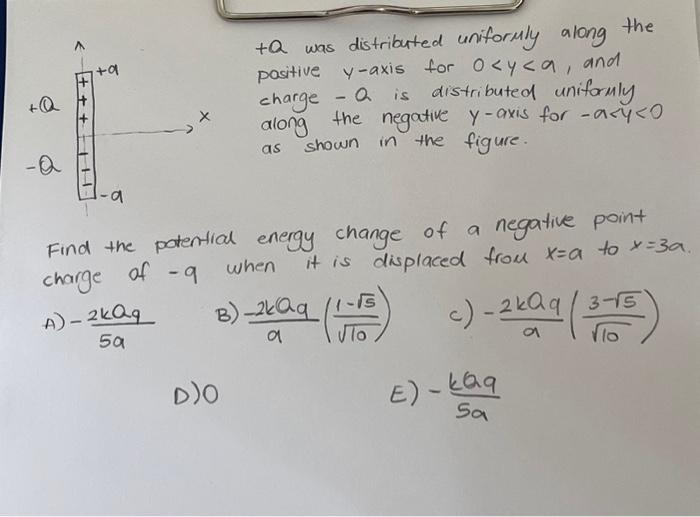 +Q was distributed uniformly along the
positive y-axis for 0<y<a, and
charge -Q is distributed uniformly
along the negative y-axis for -a<y<0
as shown in the figure.
+a
+Q
x
-Q
-a
Find the potential energy change of a negative point
charge of -q when it is displaced from x=a to x=3a.
A) - 2kQq / 5a B) -2kQq / a (1-√5 / √10) C) - 2kQq / a (3-√5 / √10)
D) 0 E) - kQq / 5a